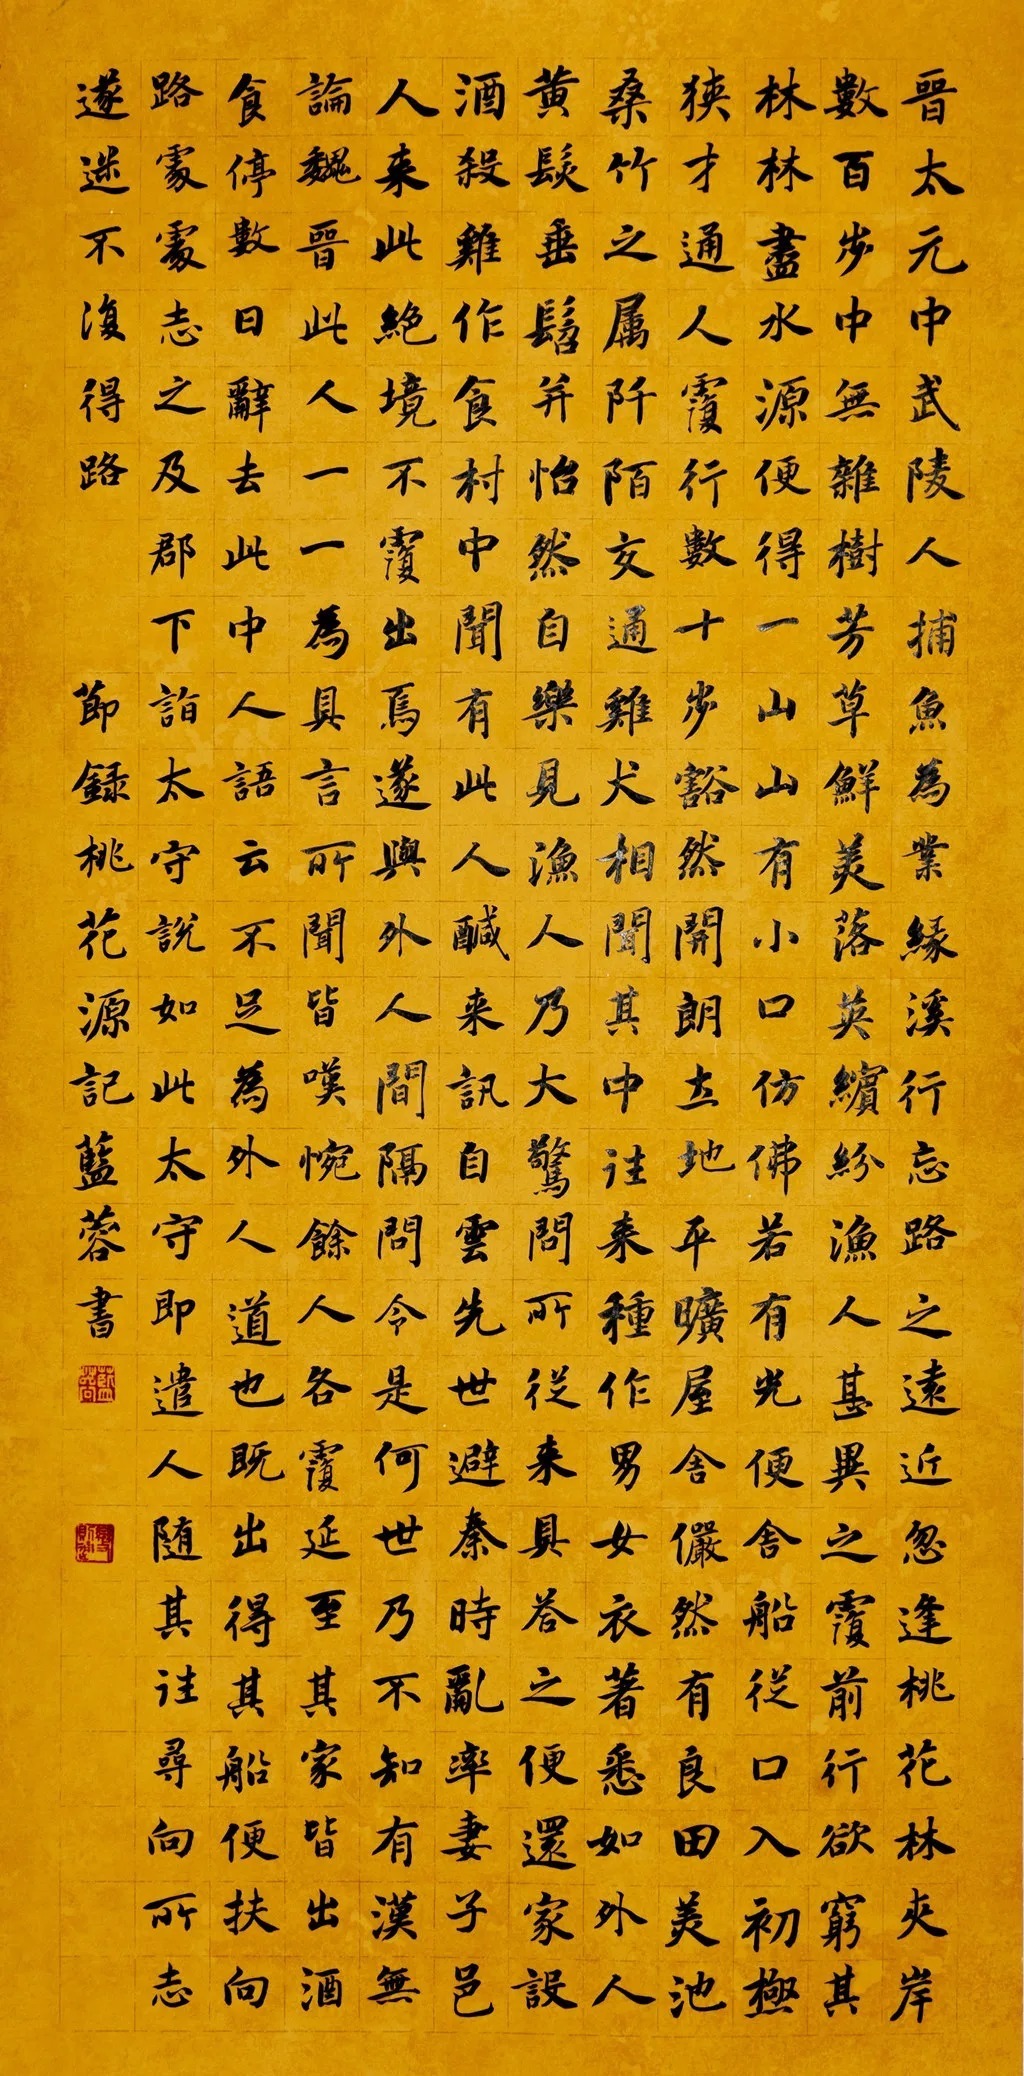 晉太元中武陵人捕魚為業緣溪行忘路之遠近忽逢桃花林夾岸
數百步中無雜樹芳草鮮美落英繽紛漁人甚異之覆前行欲窮其
林林盡水源便得一山山有小口仿佛若有光便舍船從口入初極
狹才通人覆行數十步豁然開朗土地平曠屋舍儼然有良田美池
桑竹之属阡陌交通雞犬相聞其中往来種作男女衣著悉如外人
黃髮垂髫并怡然自樂見漁人乃大驚問所從来具答之便還家設
酒殺雞作食村中聞有此人鹹来訊自雲先世避秦時亂率妻子邑
人来此絕境不覆出焉遂與外人間隔問今是何世乃不知有漢無
論魏晉此人一一為具言所聞皆嘆惋餘人各覆延至其家皆出酒
食停數日辭去此中人語云不足為外人道也既出得其船便扶向
路處處志之及郡下詣太守說如此太守即遣人随其往尋向所志
遂迷不復得路 節録桃花源記藍蓉書
藍蓉